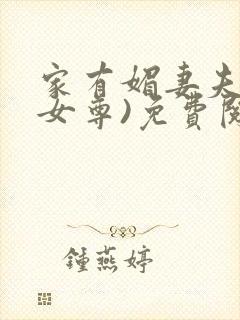 家有媚妻夫
女尊)免費閱
鍾燕婷